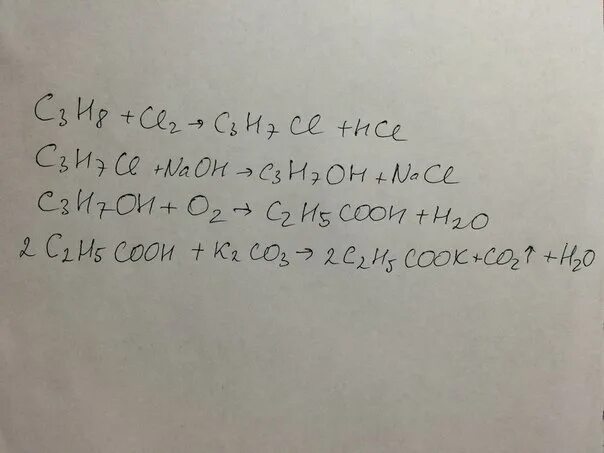 C3H8 + Cl2 → C3H7Cl + HCl
C3H7Cl + NaOH → C3H7OH + NaCl
C3H7OH + O2 → C2H5COOH + H2O
2 C2H5COOH + K2CO3 → 2C2H5COOK + CO2↑ + H2O